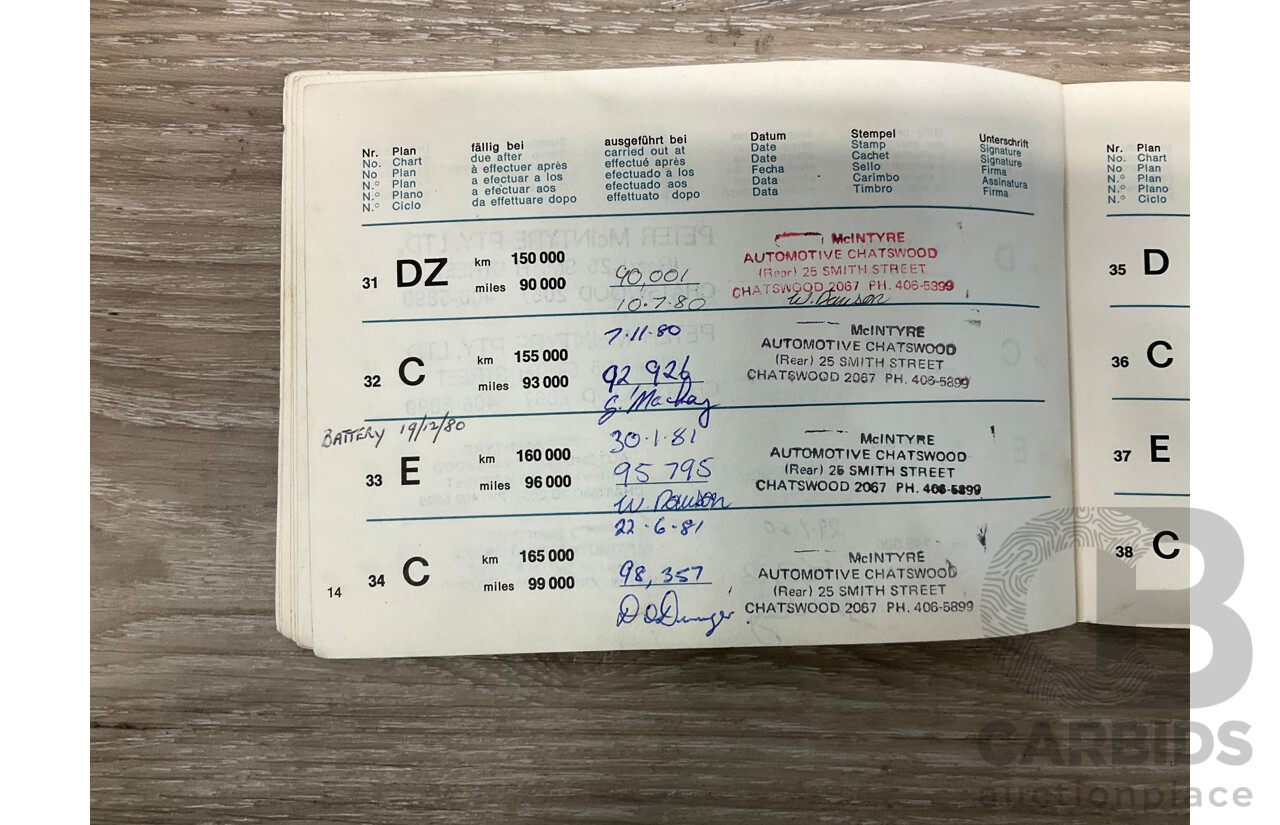 Nr. Plan fällig bei ausgeführt bei Datum Stempel Unterschrift
No. Chart due after carried out at Date Stamp Signature
No Plan à effectuer après effectué après Date Cachet Signature
N.º Plan a efectuar a los efectuado a los Fecha Sello Firma
N.º Plano a efectuar aos efectuado aos Data Carimbo Assinatura
N.º Ciclo da effettuare dopo effettuato dopo Data Timbro Firma
31 DZ km 150 000
miles 90 000
90,001
10.7.80
McINTYRE
AUTOMOTIVE CHATSWOOD
(Rear) 25 SMITH STREET
CHATSWOOD 2067 PH. 406-5899
W. Dawson
32 C km 155 000
miles 93 000
7.11.80
92 926
G. Mackay
McINTYRE
AUTOMOTIVE CHATSWOOD
(Rear) 25 SMITH STREET
CHATSWOOD 2067 PH. 406-5899
BATTERY 19/12/80
33 E km 160 000
miles 96 000
30.1.81
95 795
W. Dawson
McINTYRE
AUTOMOTIVE CHATSWOOD
(Rear) 25 SMITH STREET
CHATSWOOD 2067 PH. 406-5899
34 C km 165 000
miles 99 000
22.6.81
98,357
McINTYRE
AUTOMOTIVE CHATSWOOD
(Rear) 25 SMITH STREET
CHATSWOOD 2067 PH. 406-5899
14
Nr. Plan
No. Chart
No Plan
N.º Plan
N.º Plano
N.º Ciclo
35 D
36 C
37 E
38 C
CARBIDS
auctionplace